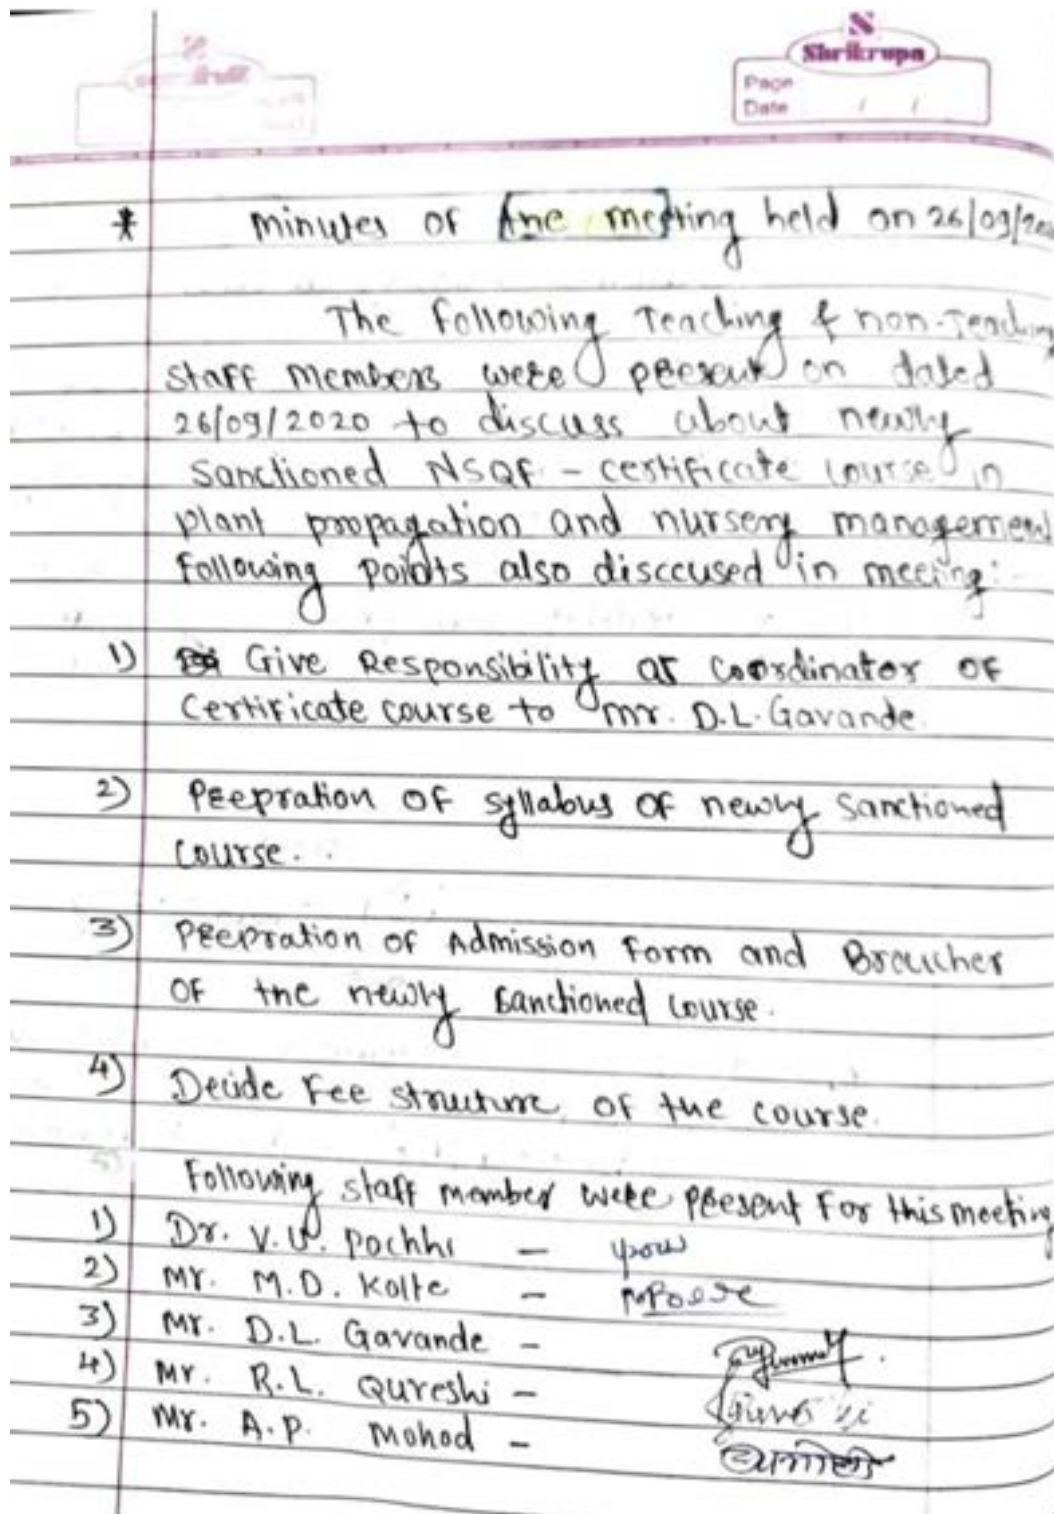 Shrikrupa
Page
Date / /
* Minutes of the meeting held on 26/09/2020
The following Teaching & non-Teaching
staff members were present on dated
26/09/2020 to discuss about newly
sanctioned NSQF - certificate course in
plant propagation and nursery management
following points also disccused in meeting:
1) Give Responsibility as Coordinator of
Certificate course to Mr. D.L. Gavande.
2) Preepration of syllabus of newly sanctioned
course.
3) Preepration of Admission form and Broucher
of the newly sanctioned course.
4) Decide Fee structure of the course.
5)
Following staff member were present for this meeting
1) Dr. V.U. Pochhi -
2) Mr. M.D. Kolte -
3) Mr. D.L. Gavande -
4) Mr. R.L. Qureshi -
5) Mr. A.P. Mohod -